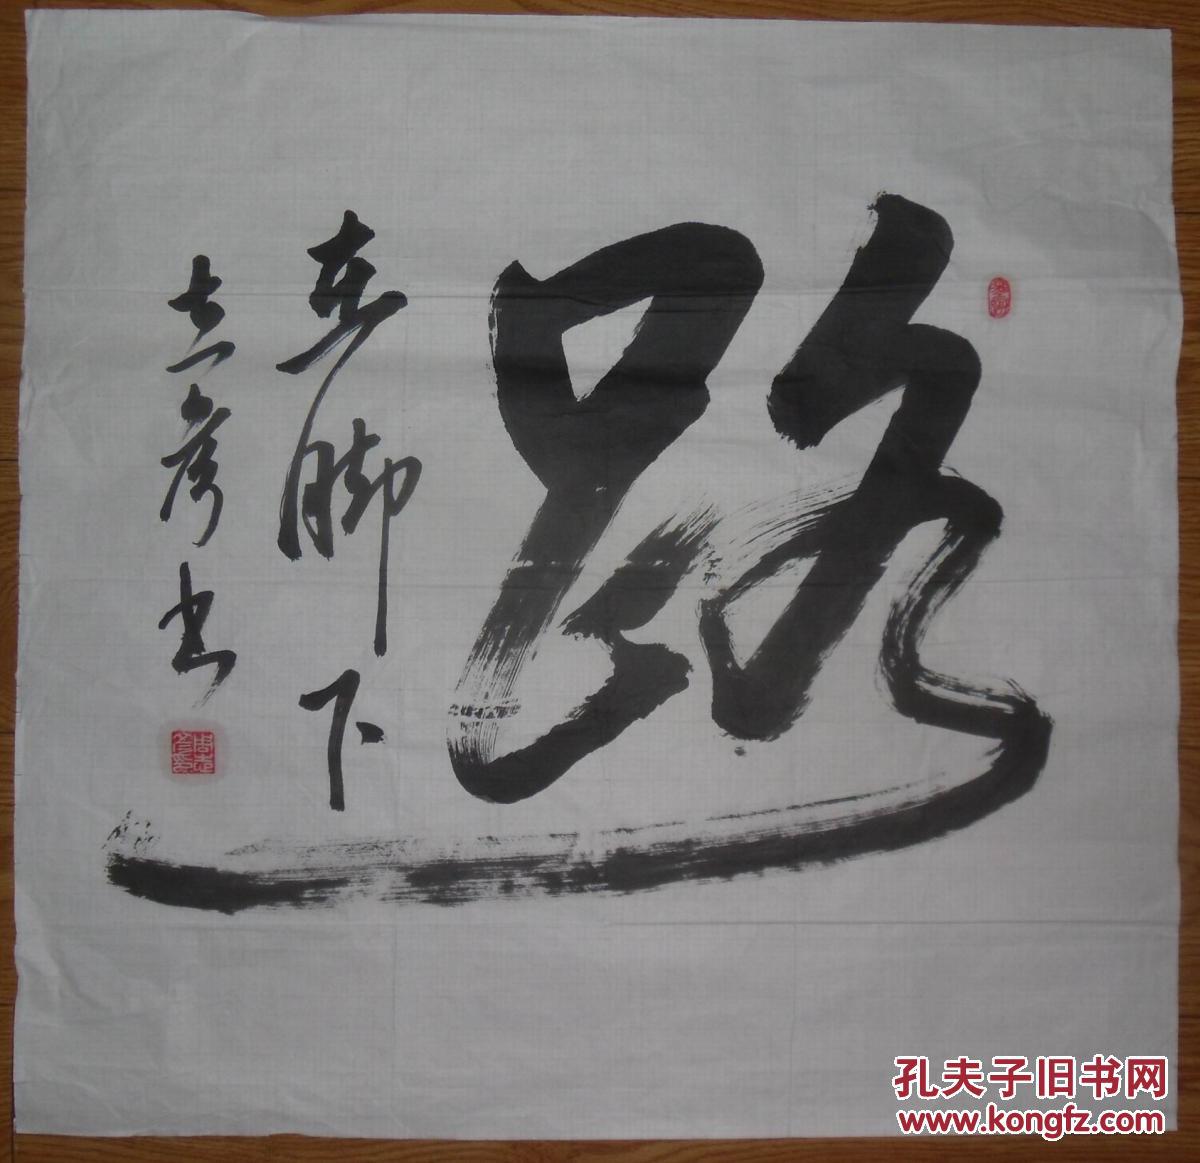 路
在脚下
志彦书
周志彦印
孔夫子旧书网
www.kongfz.com